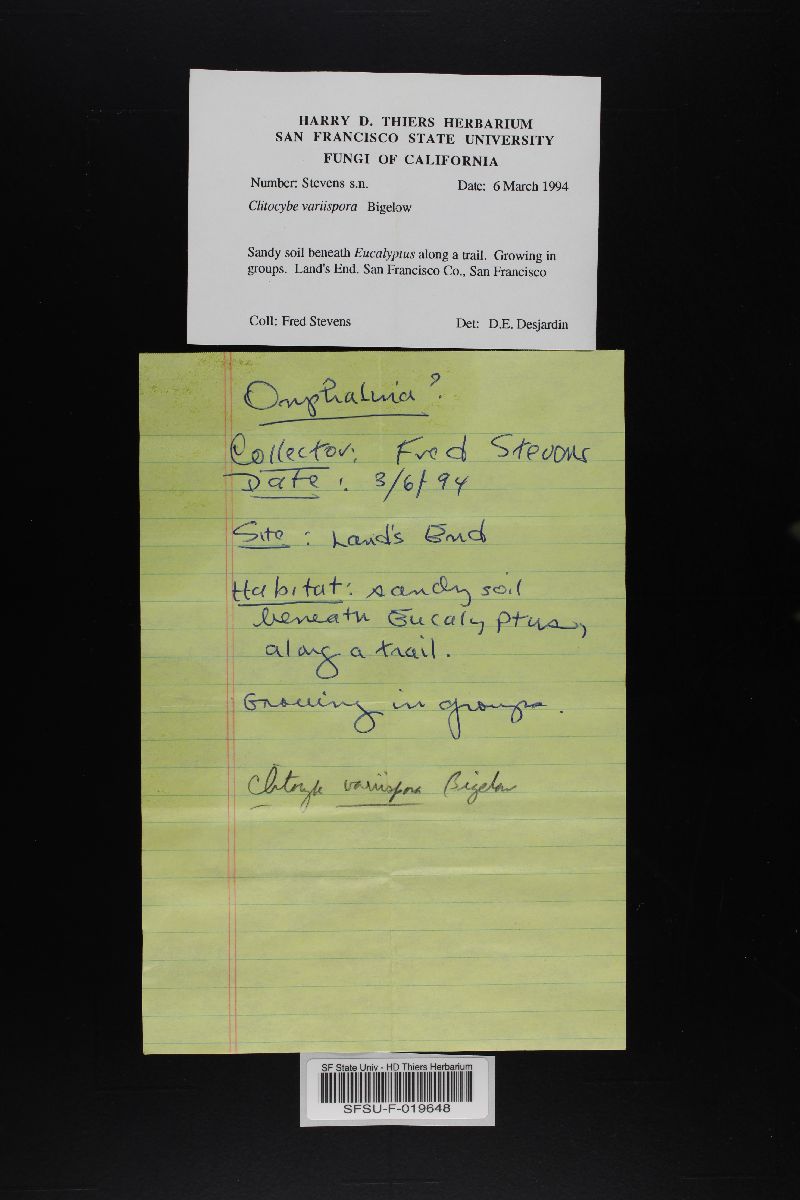 HARRY D. THIERS HERBARIUM
SAN FRANCISCO STATE UNIVERSITY
FUNGI OF CALIFORNIA
Number: Stevens s.n. Date: 6 March 1994
Clitocybe variispora Bigelow
Sandy soil beneath Eucalyptus along a trail. Growing in
groups. Land's End. San Francisco Co., San Francisco
Coll: Fred Stevens Det: D.E. Desjardin
Omphalina?
Collector: Fred Stevens
Date: 3/6/94
Site: Land's End
Habitat: sandy soil
beneath Eucalyptus,
along a trail.
Growing in groups.
Clitocybe variispora Bigelow
SF State Univ - HD Thiers Herbarium
SFSU-F-019648